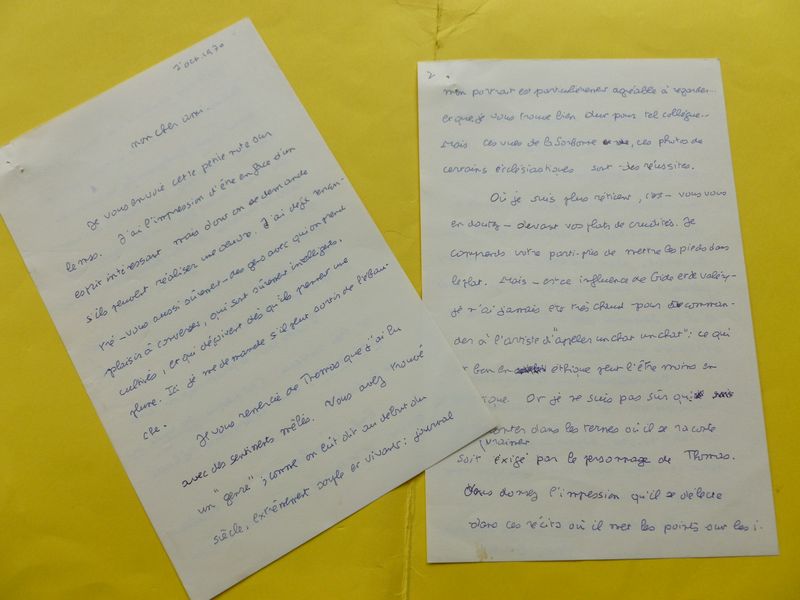 2 Oct. 1970
mon cher ami..
Je vous envoie cette petite note sur
le mso. J'ai l'impression d'être en face d'un
esprit intéressant mais dont on se demande
s'ils peuvent réaliser une oeuvre. J'ai déjà rencon-
tré - vous aussi sûrement - des gens avec qui on prend
plaisir à converser, qui sont sûrement intelligents,
cultivés, et qui déçoivent dès qu'ils prennent une
plume. Ici je me demande s'il peut sortir de l'ébau-
che.
Je vous remercie de Thomas que j'ai lu
avec des sentiments mêlés. Vous avez trouvé
un "genre", comme on eût dit au début du
siècle, extrêmement souple et vivant : journal
2
mon portrait est particulièrement agréable à regarder...
et que je vous trouve bien dur pour tel collègue..
Mais ces vues de la Sorbonne, ces photos de
certains ecclésiastiques sont des réussites.
Où je suis plus réticent, c'est - vous vous
en doutez - devant vos plats de crudités. Je
comprends votre parti-pris de mettre les pieds dans
le plat. Mais - est-ce influence de Gide et de Valéry -
je n'ai jamais été très chaud pour comman-
der à l'artiste d'"appeler un chat un chat" : ce qui
est bien en éthique peut l'être moins en
ique. Or je ne suis pas sûr qu
onter dans les termes où il se raconte
vraiment
soit exigé par le personnage de Thomas.
Vous donnez l'impression qu'il se délecte
dans ces récits où il met les points sur les i.